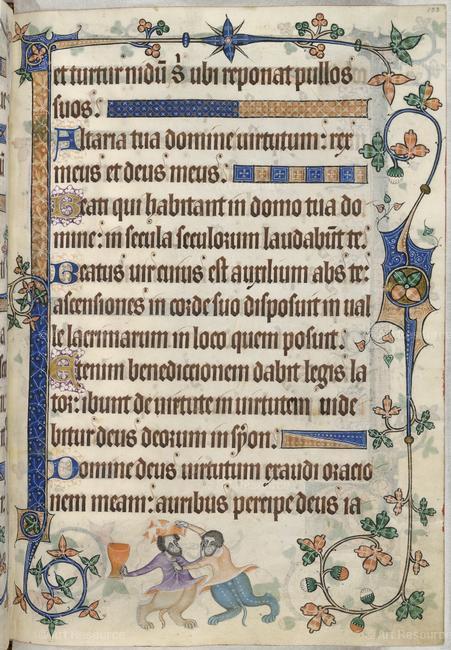 153
et turtur nidū s̄ ubi reponat pullos
suos.
Altaria tua domine uirtutum: rex
meus et deus meus.
Beati qui habitant in domo tua do
mine: in secula seculorum laudabūt te.
Beatus uir cuius est auxilium abs te:
ascensiones in corde suo disposuit in ual
le lacrimarum in loco quem posuit.
Etenim benediccionem dabit legis la
tor: ibunt de uirtute in uirtutem uide
bitur deus deorum in syon.
Domine deus uirtutum exaudi oracio
nem meam: auribus percipe deus ia
Art Resource
Art Resource